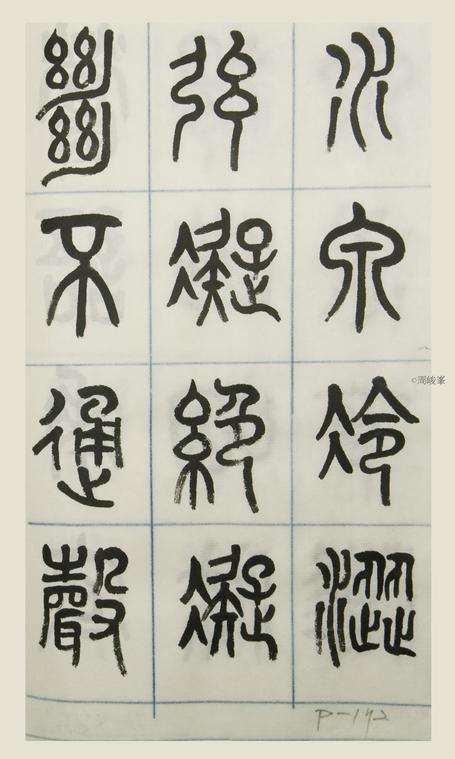 水泉冷澀
弦凝絕凝
絕不通聲
P-142
©周峻峯